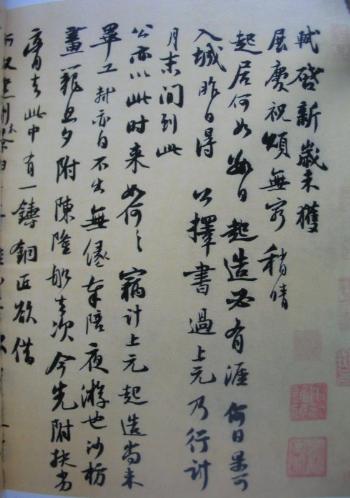 軾啓新歲未獲
展慶祝頌無窮稍晴
起居何如數日起造必有涯何日果可
入城昨日得公擇書過上元乃行計
月末間到此
公亦以此時來如何々竊計上元起造尚未
畢工軾亦自不出無緣奉陪夜游也沙枋
畫籠旦夕附陳隆船去次今先附扶劣
膏去此中有一鑄銅匠欲借